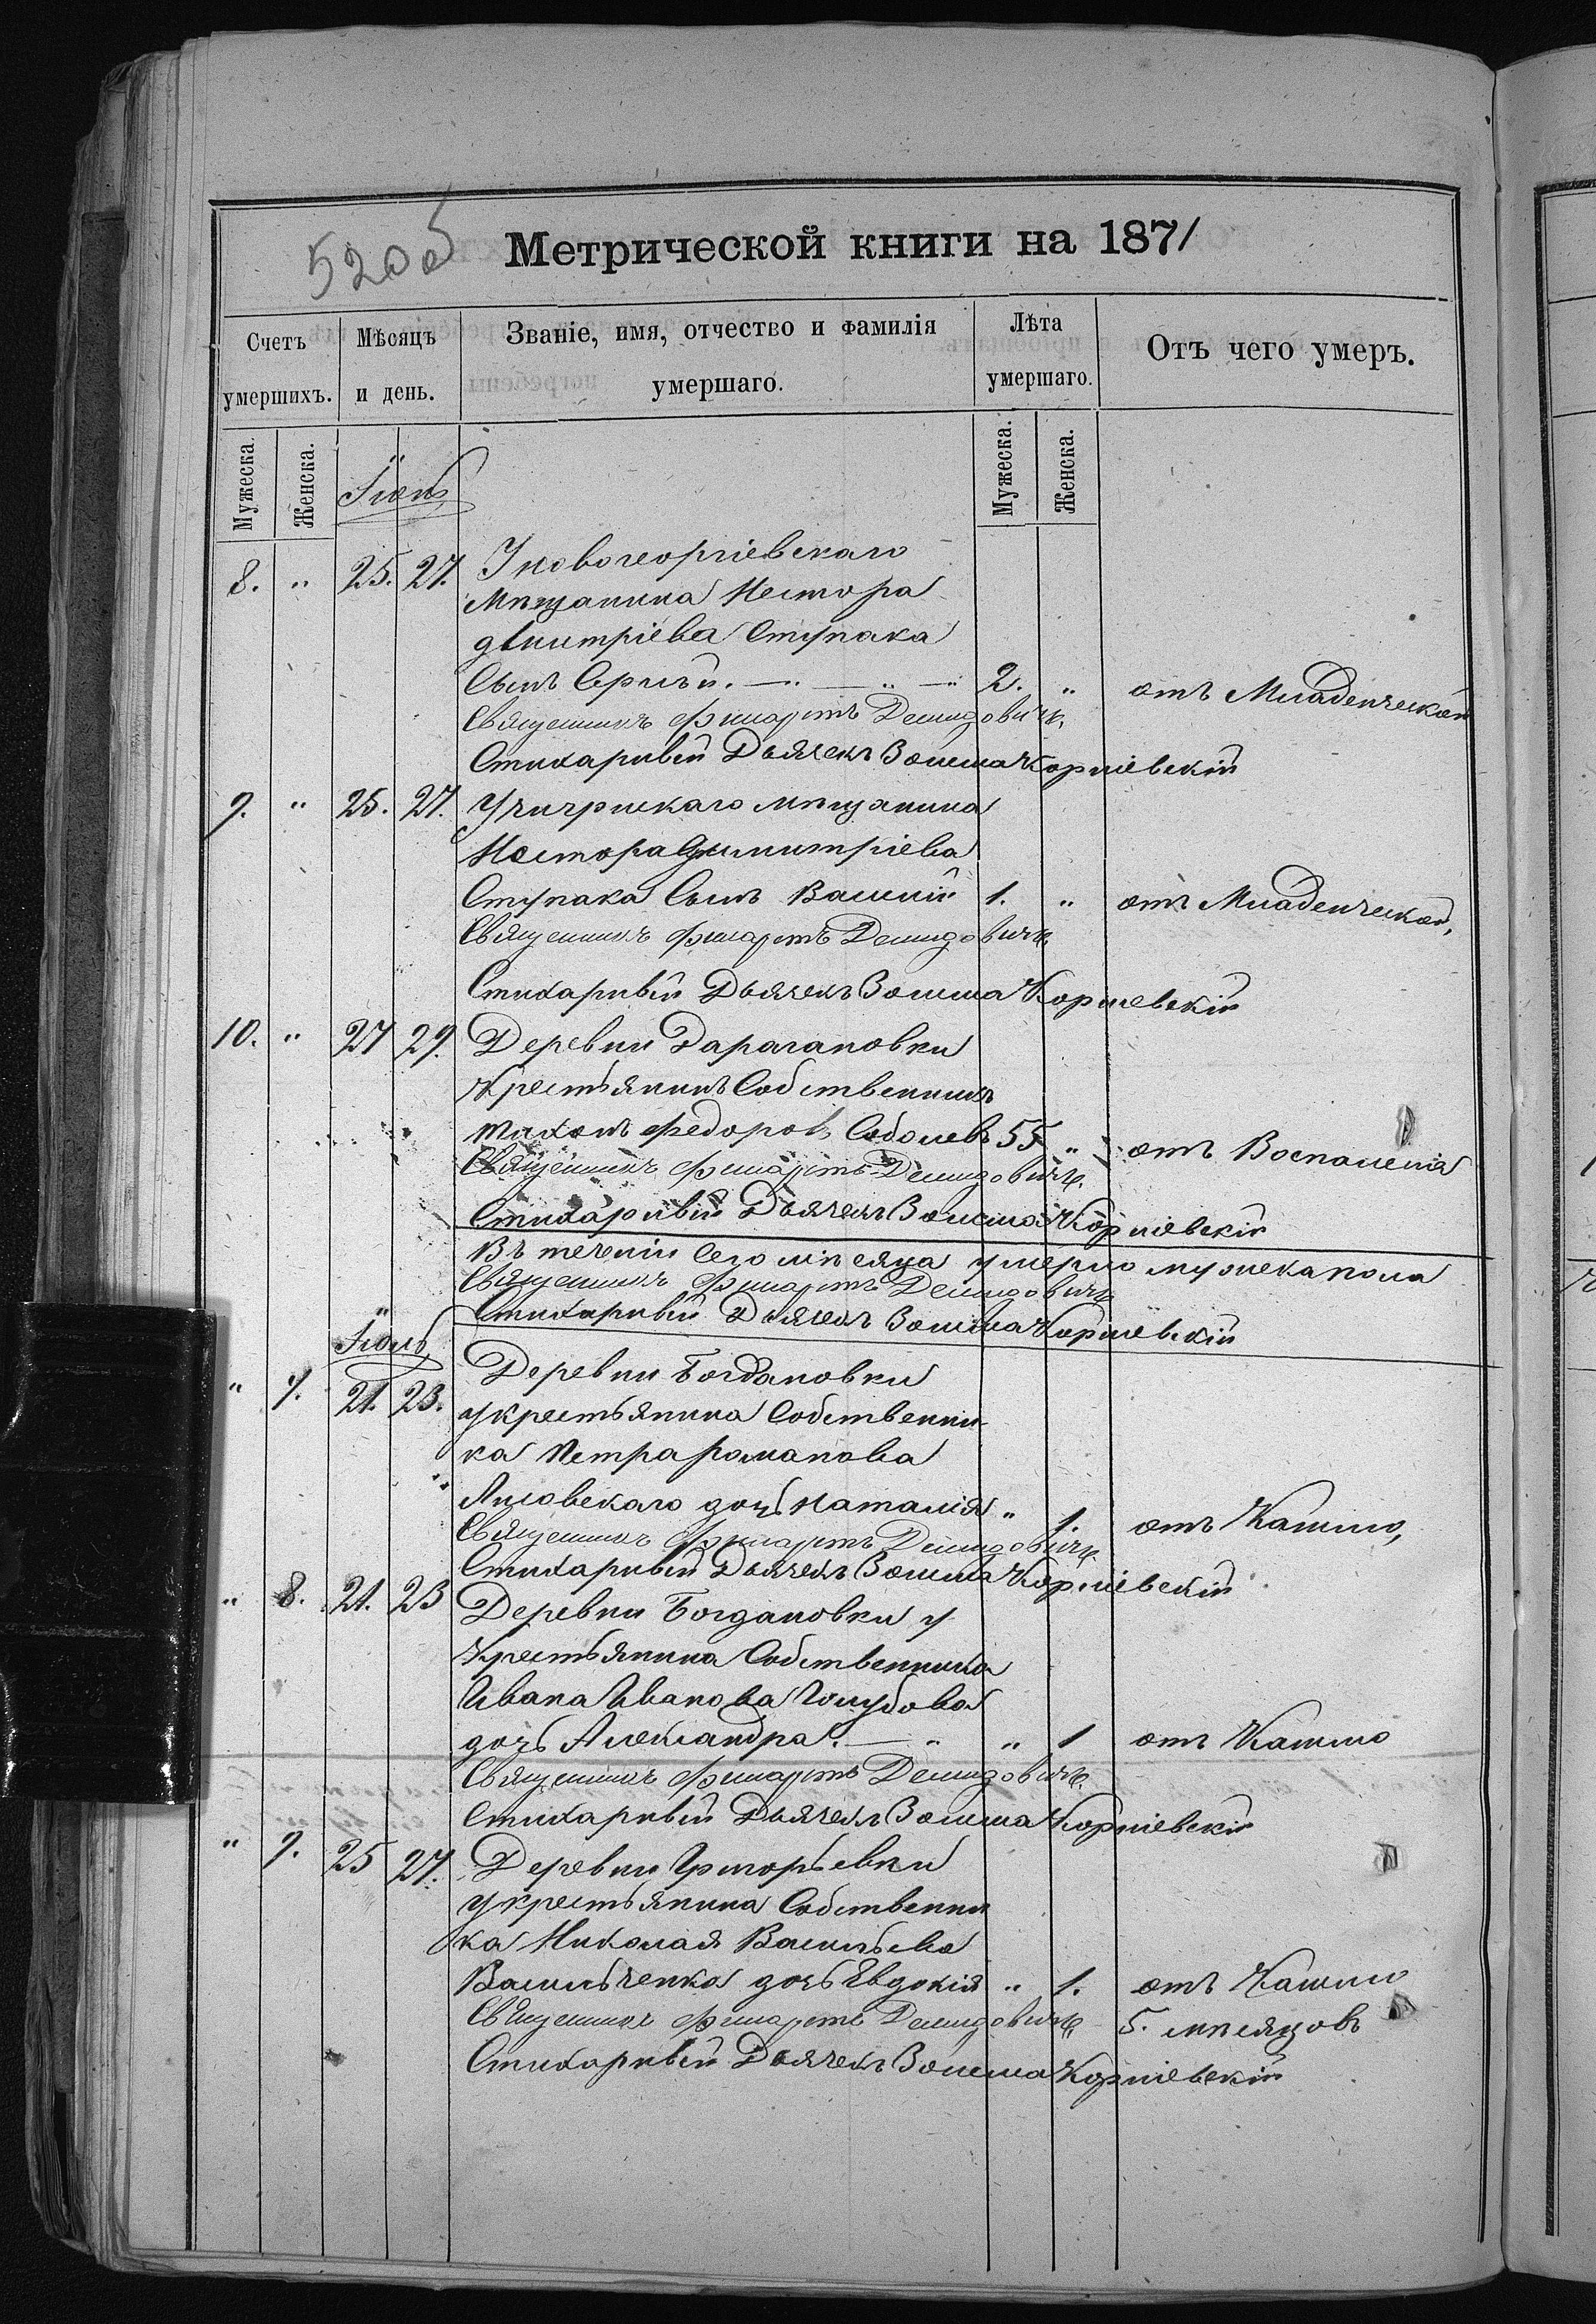 520об
Метрической книги на 1871
Счетъ умершихъ.
Мѣсяцъ и день.
Званіе, имя, отчество и фамилія умершаго.
Лѣта умершаго.
Отъ чего умеръ.
Мужеска.
Женска.
Мужеска.
Женска.
Іюнь
8. " 25. 27. У новогеоргіевскаго
мѣщанина Нестора
Димитріева Ступака
сынъ Сергѣй. — " — " — " 2. " отъ Младенческой
Священникъ Филаретъ Демидовичъ.
Стихарный Дьячекъ Зосима Корніевскій
9. " 25. 27. У чигринскаго мѣщанина
Нестора Димитріева
Ступака сынъ Василій 1. " отъ Младенческой,
Священникъ Филаретъ Демидовичъ
Стихарный Дьячекъ Зосима Корніевскій
10. " 27 29. Деревни Дарагановки
Крестьянинъ Собственникъ
Тихонъ Федоровъ Соболевъ 55 " отъ Воспаленія
Священникъ Филаретъ Демидовичъ.
Стихарный Дьячекъ Зосима Корніевскій
Въ теченіи сего мѣсяца умерло мужска пола
Священникъ Филаретъ Демидовичъ
Стихарный Дьячекъ Зосима Корніевскій
Іюль
" 7. 21. 23. Деревни Богдановки
у крестьянина Собственни-
ка Петра Романова
Лисовскаго дочь Наталія " 1. отъ Кашлю,
Священникъ Филаретъ Демидовичъ.
Стихарный Дьячекъ Зосима Корніевскій
" 8. 21. 23 Деревни Богдановки у
Крестьянина Собственника
Ивана Иванова Голубова
дочь Александра. — " " 1 отъ Кашлю
Священникъ Филаретъ Демидовичъ.
Стихарный Дьячекъ Зосима Корніевскій
" 9. 25 27. Деревни Григорьевки
у крестьянина Собственни
ка Николая Васильева
Васильченка дочь Евдокія " 1. отъ Кашлю
Священникъ Филаретъ Демидовичъ, 5. мѣсяцовъ
Стихарный Дьячекъ Зосима Корніевскій